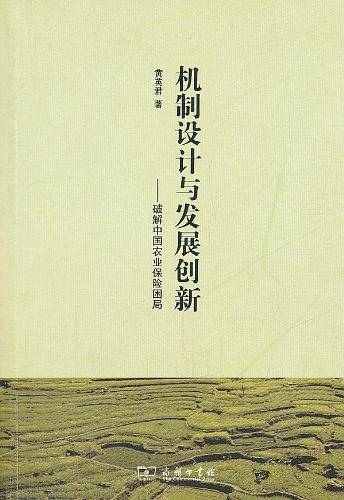 机制设计与发展创新
——破解中国农业保险困局
黄英君 著
商务印书馆
The Commercial Press